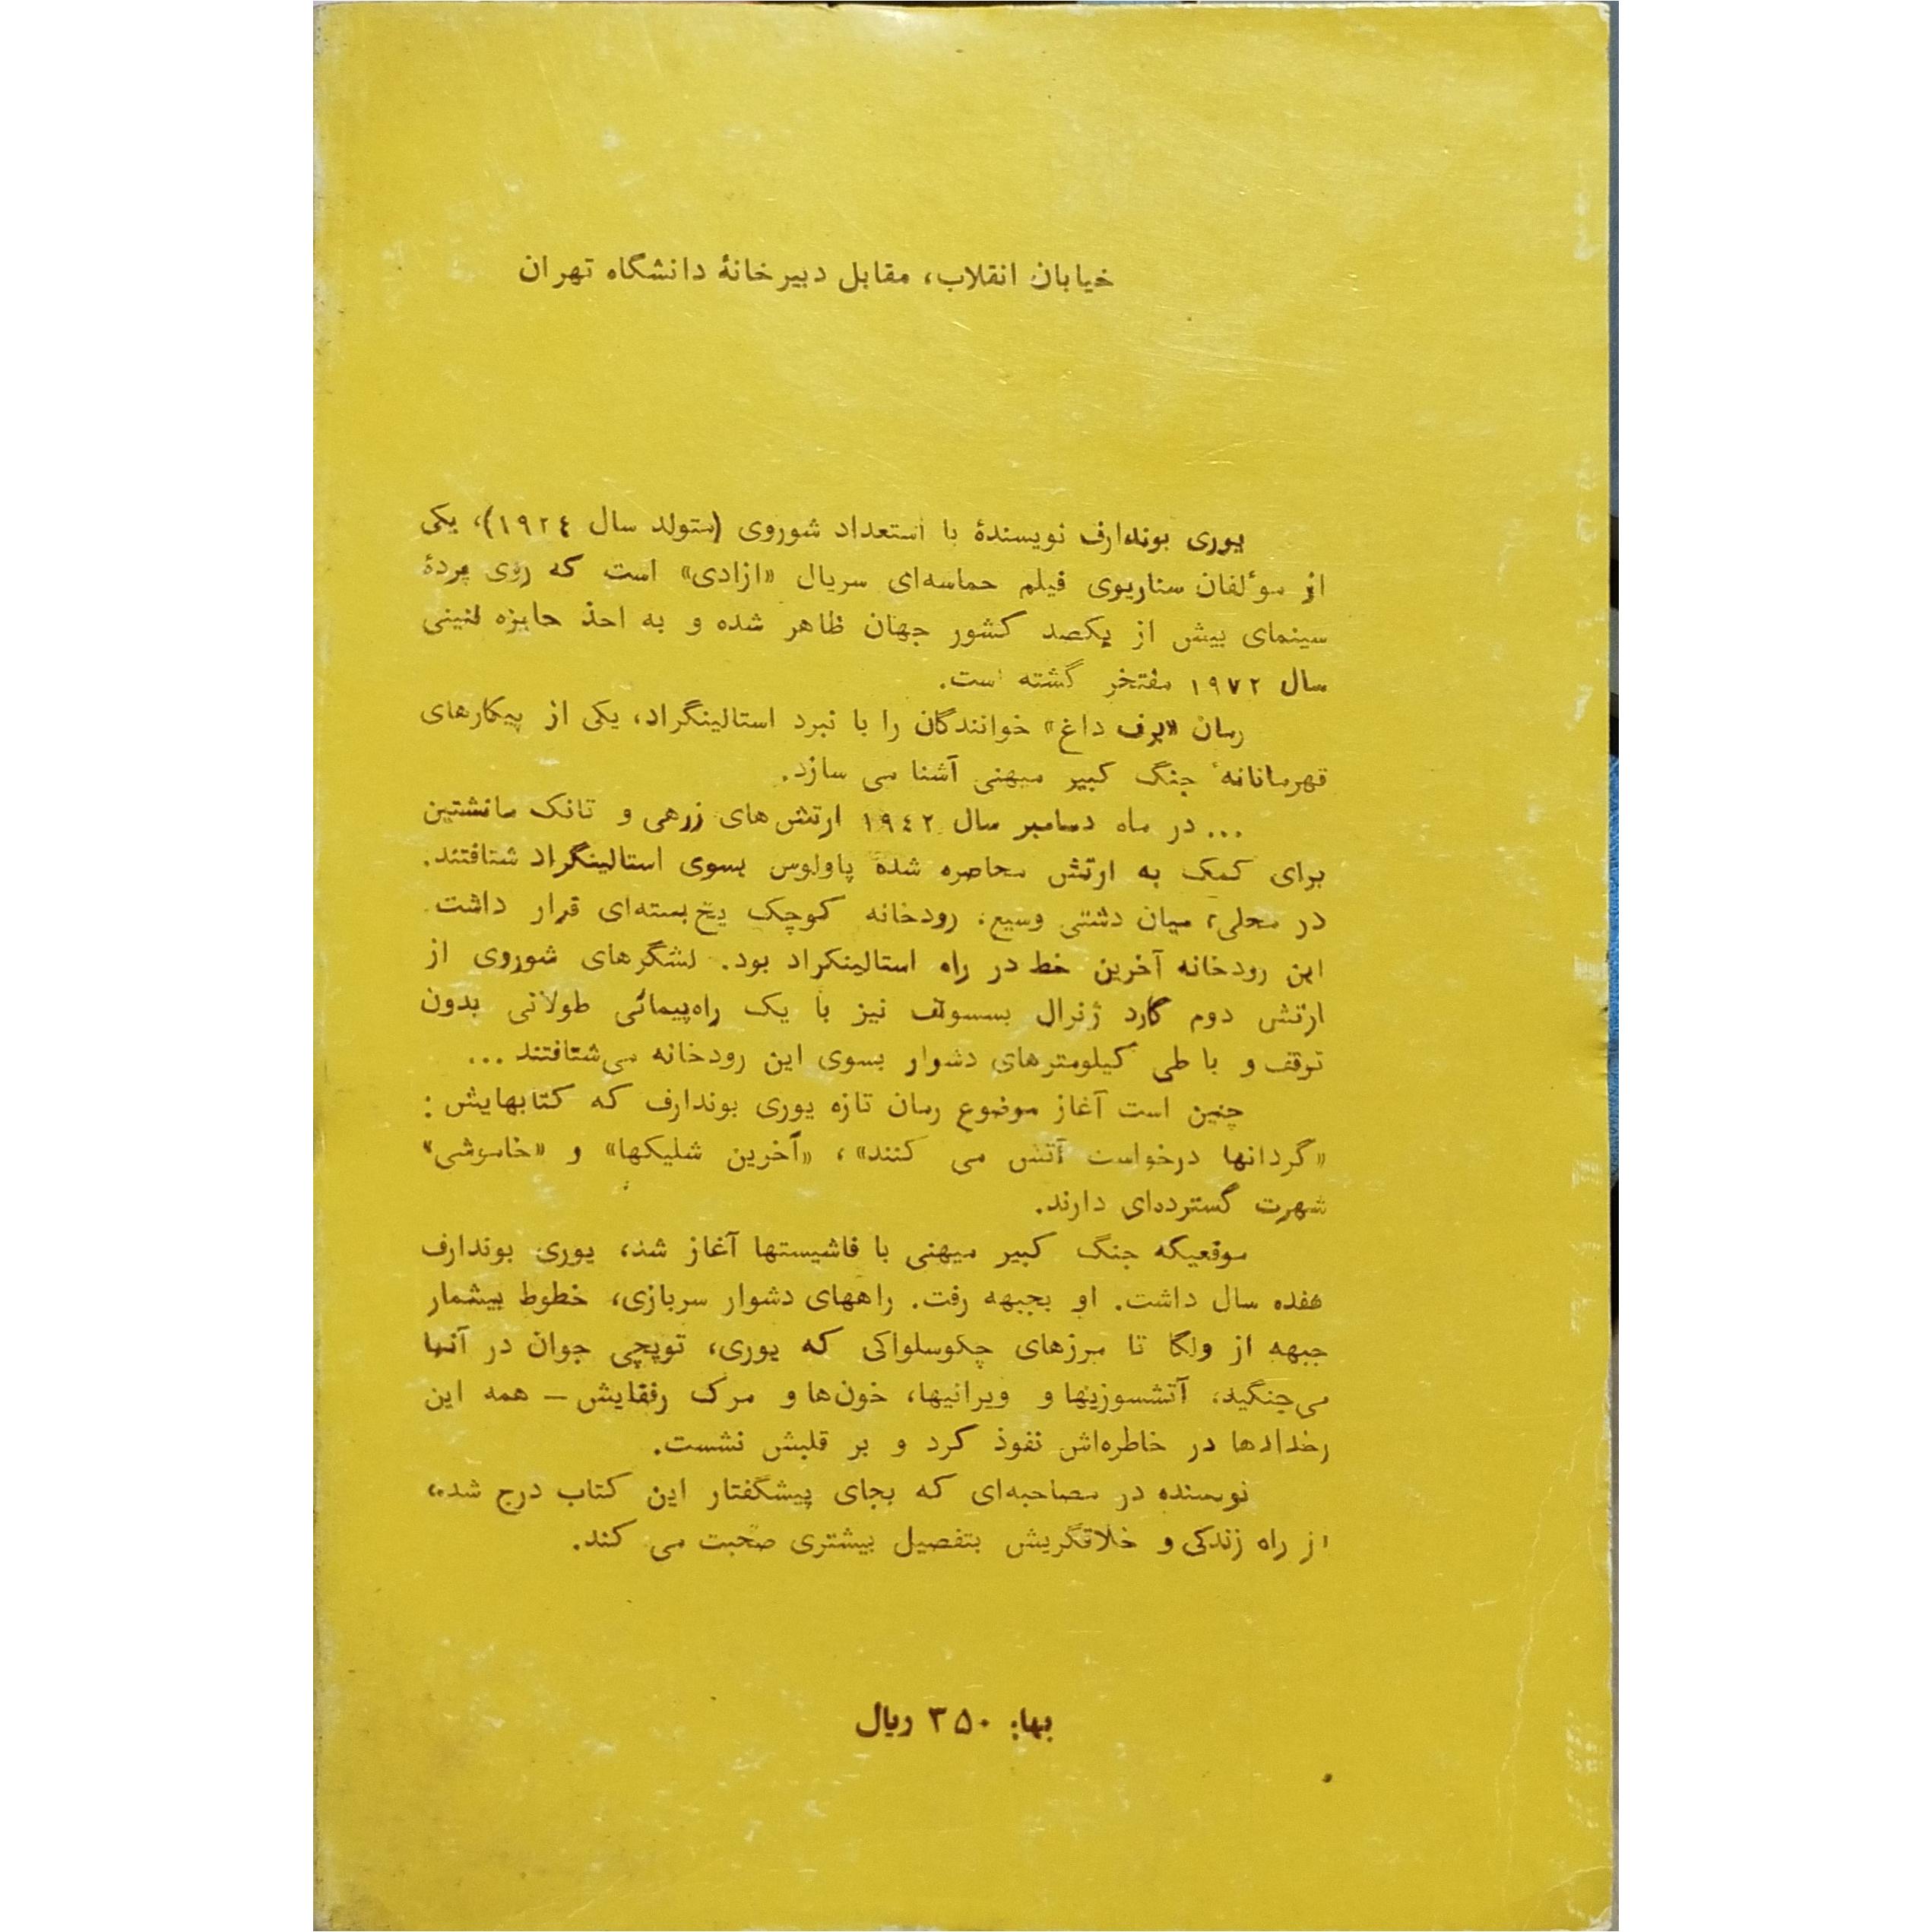 خیابان انقلاب، مقابل دبیرخانهٔ دانشگاه تهران
یوری بوندارف نویسندهٔ با استعداد شوروی (متولد سال ۱۹۲٤)، یکی
از مؤلفان سناریوی فیلم حماسه‌ای سریال «ازادی» است که روی پردهٔ
سینمای بیش از یکصد کشور جهان ظاهر شده و به اخذ جایزه لنینی
سال ۱۹۷۲ مفتخر گشته است.
رمان «برف داغ» خوانندگان را با نبرد استالینگراد، یکی از پیکارهای
قهرمانانهٔ جنگ کبیر میهنی آشنا می سازد.
... در ماه دسامبر سال ۱۹٤۲ ارتش‌های زرهی و تانک مانشتین
برای کمک به ارتش محاصره شدهٔ پاولوس بسوی استالینگراد شتافتند.
در محلی، میان دشتی وسیع، رودخانه کوچک یخ‌بسته‌ای قرار داشت.
این رودخانه آخرین خط در راه استالینکراد بود. لشگرهای شوروی از
ارتش دوم گارد ژنرال بسسونف نیز با یک راه‌پیمائی طولانی بدون
توقف و با طی کیلومترهای دشوار بسوی این رودخانه می‌شتافتند ...
چنین است آغاز موضوع رمان تازه یوری بوندارف که کتابهایش:
«گردانها درخواست آتش می کنند»، «آخرین شلیکها» و «خاموشی»
شهرت گسترده‌ای دارند.
موقعیکه جنگ کبیر میهنی با فاشیستها آغاز شد، یوری بوندارف
هفده سال داشت. او بجبهه رفت. راههای دشوار سربازی، خطوط بیشمار
جبهه از ولگا تا مرزهای چکوسلواکی که یوری، توپچی جوان در آنها
می‌جنگید، آتشسوزیها و ویرانیها، خون‌ها و مرک رفقایش – همه این
رخدادها در خاطره‌اش نفوذ کرد و بر قلبش نشست.
نویسنده در مصاحبه‌ای که بجای پیشگفتار این کتاب درج شده،
از راه زندکی و خلاقگریش بتفصیل بیشتری صحبت می کند.
بها: ۳۵۰ ریال